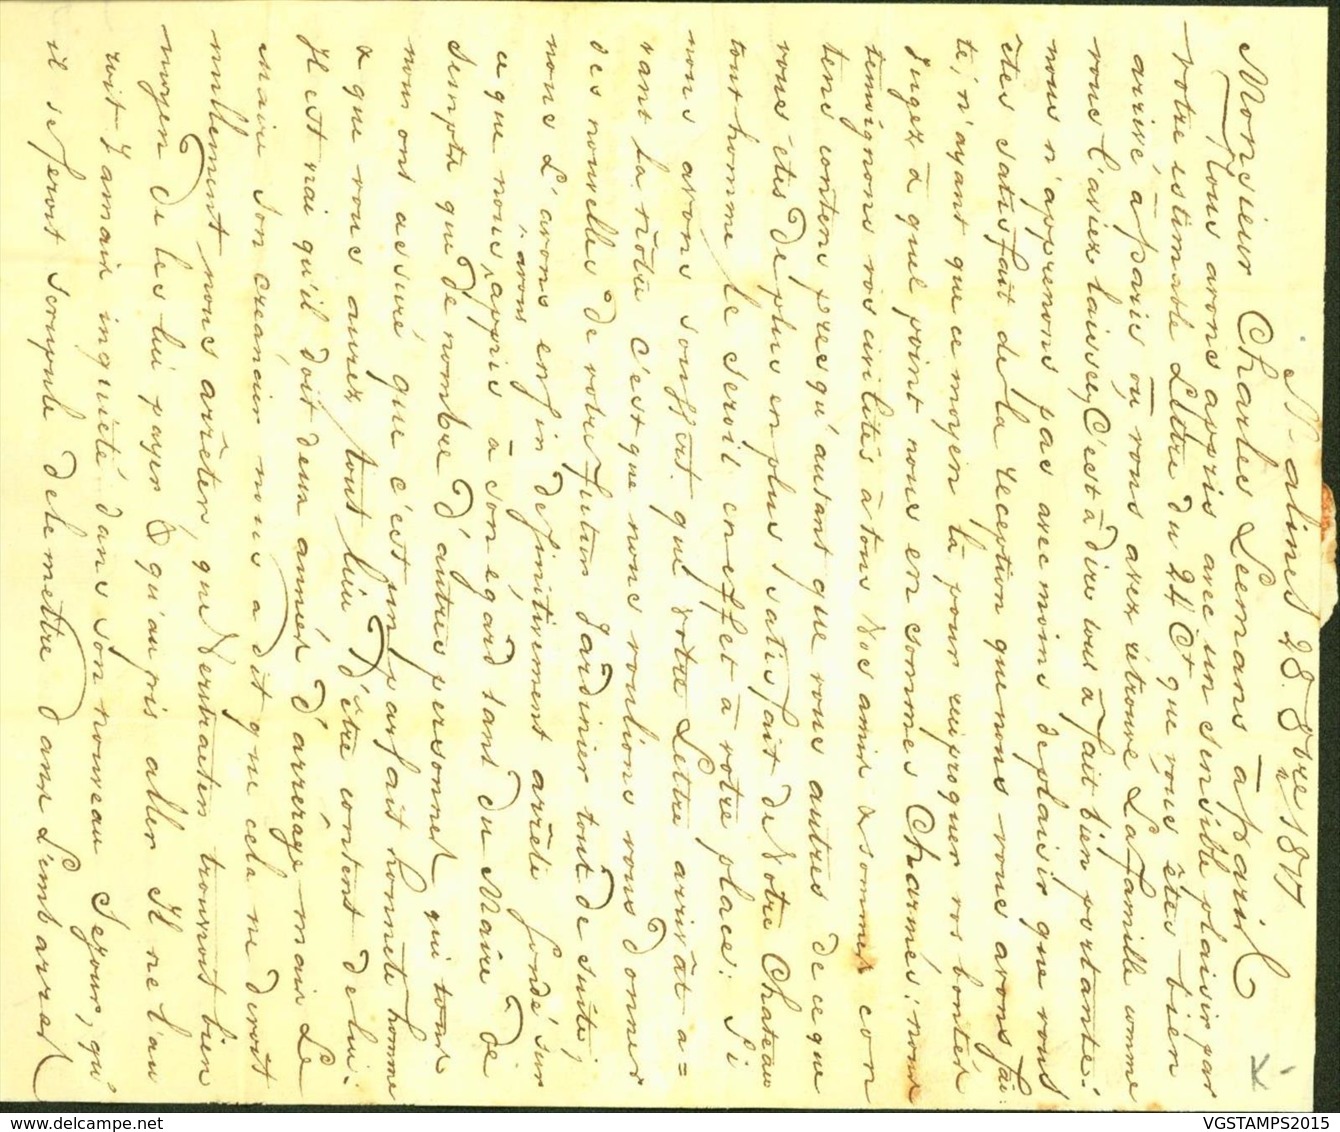 Malines 28. 8bre 1817
Monsieur Charles Leemans à paris
Nous avons appris avec un sensible plaisir par
votre estimable Lettre du 24 Ct que vous êtes bien
arrivé à paris où vous avez rétrouvé La famille comme
vous l'aviez laissée, C'est à dire tous à fait bien portante:
nous n'apprenons pas avec moins de plaisir que vous
êtes satisfait de la reception que nous vous avons fai:
te, n'ayant que ce moyen là pour reciproquer vos bontés
jugez à quel point nous en sommes Charmés: nous
temoignons vos civilités à tous vos amis & sommes con
tens contens presqu'autant que vous autres de ce que
vous êtes de plus en plus satisfait de votre Chateau
tout homme le seroit en effet à votre place: Si
nous avons souffert que votre Lettre arrivât a=
vant la nôtre c'est que nous voulions vous donner
des nouvelles de votre futur Jardinier tout de suite,
nous L'avons enfin définitivement arrêté fondé sur
ce que nous avons appris à son égard tant du Maire de
Sempst que de nombre d'autres personnes qui tous
nous ont assuré que c'est un parfait honnête homme
& que vous aurez tout lieu d'être content de lui.
Il est vrai qu'il doit deux années d'arrérage mais Le
maire son creancier nous a dit que cela ne devoit
nullement nous arrêter, que Verstraeten trouvoit bien
moyen de les lui payer & qu'au pis aller Il ne l'au
roit Jamais inquiété dans son nouveau Sejour, qu'
il se feroit scrupule de le mettre dans L'embarras
K-
VGSTAMPS2015